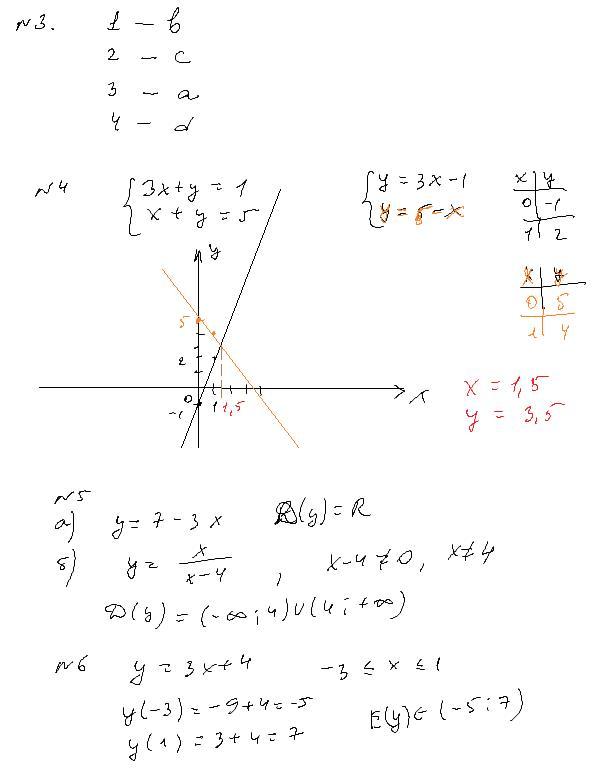 №3. 1 – b
2 – c
3 – a
4 – d
№4 { 3x+y = 1
x + y = 5
{ y = 3x-1
y = 5-x
x | y
0 | -1
1 | 2
x | y
0 | 5
1 | 4
y
5
2
0 1 1,5 x
-1
x = 1,5
y = 3,5
№5
а) y = 7 - 3x D(y) = R
б) y = x/(x-4) , x-4 ≠ 0, x ≠ 4
D(y) = (-∞; 4) ∪ (4; +∞)
№6 y = 3x+4 -3 ≤ x ≤ 1
y(-3) = -9+4 = -5
y(1) = 3+4 = 7 E(y) ∈ (-5; 7)